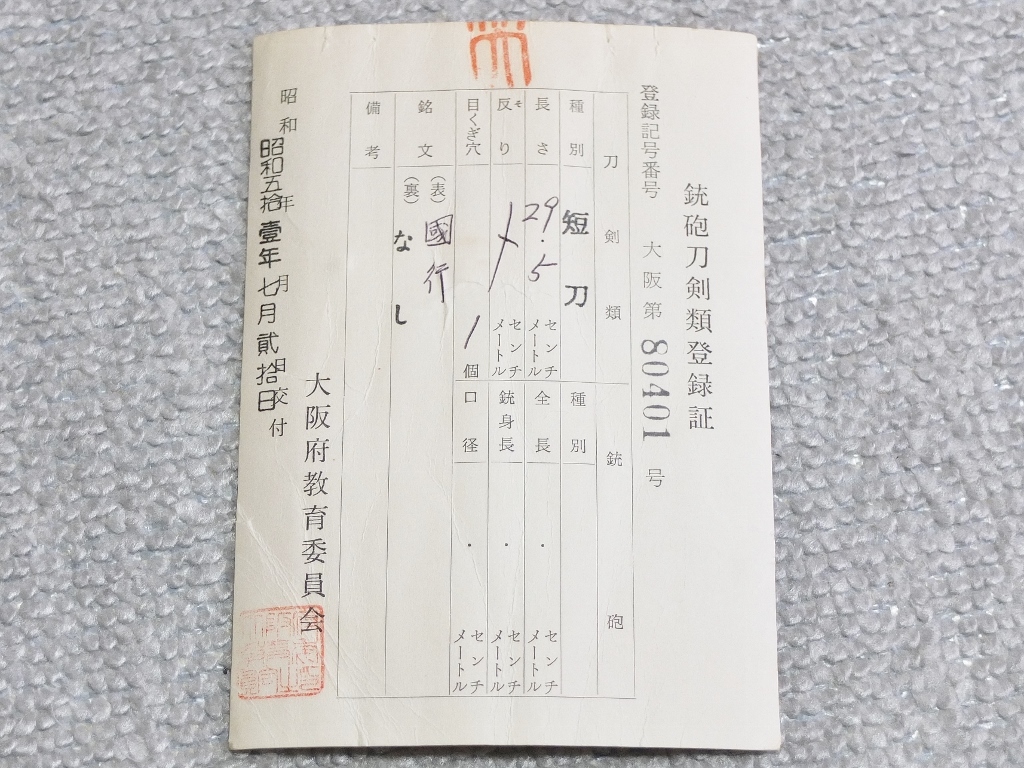 銃砲刀剣類登録証
登録記号番号 大阪第 80401 号
刀剣類
種別 短刀
長さ 29.5 センチメートル
反り そ センチメートル
目くぎ穴 1 個
銘文 (表) 國行
(裏) なし
備考
銃砲
種別
全長 . センチメートル
銃身長 . センチメートル
口径 . センチメートル
大阪府教育委員会
昭和 年 月 日交付
昭和五拾壹年七月貳拾日